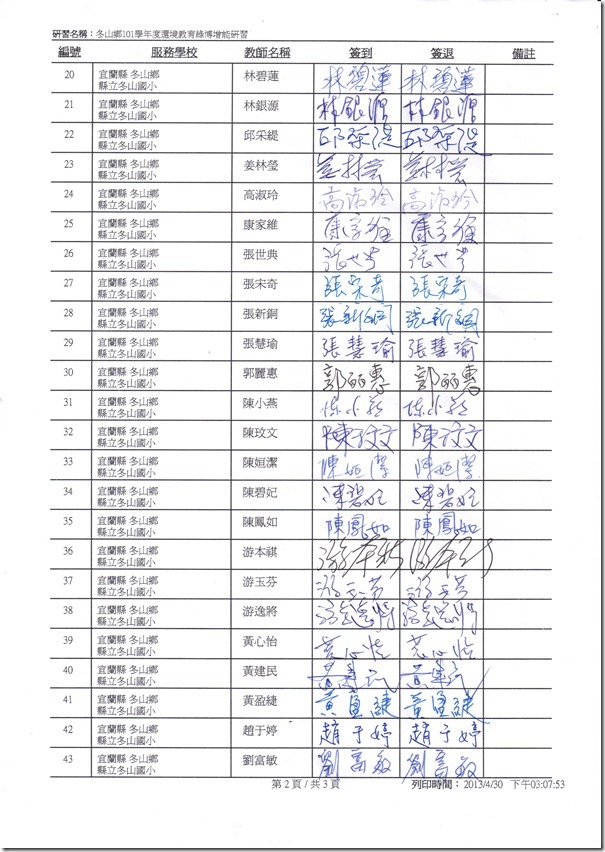 研習名稱：冬山鄉101學年度環境教育綠博增能研習
編號 服務學校 教師名稱 簽到 簽退 備註
20 宜蘭縣 冬山鄉 林碧蓮 林碧蓮 林碧蓮
縣立冬山國小
21 宜蘭縣 冬山鄉 林銀源 林銀源 林銀源
縣立冬山國小
22 宜蘭縣 冬山鄉 邱采緹 邱采緹 邱采緹
縣立冬山國小
23 宜蘭縣 冬山鄉 姜林瑩 姜林瑩 姜林瑩
縣立冬山國小
24 宜蘭縣 冬山鄉 高淑玲 高淑玲 高淑玲
縣立冬山國小
25 宜蘭縣 冬山鄉 康家維 康家維 康家維
縣立冬山國小
26 宜蘭縣 冬山鄉 張世典 張世典 張世典
縣立冬山國小
27 宜蘭縣 冬山鄉 張宋奇 張宋奇 張宋奇
縣立冬山國小
28 宜蘭縣 冬山鄉 張新銅 張新銅 張新銅
縣立冬山國小
29 宜蘭縣 冬山鄉 張慧瑜 張慧瑜 張慧瑜
縣立冬山國小
30 宜蘭縣 冬山鄉 郭麗惠 郭麗惠 郭麗惠
縣立冬山國小
31 宜蘭縣 冬山鄉 陳小燕 陳小燕 陳小燕
縣立冬山國小
32 宜蘭縣 冬山鄉 陳玫文 陳玫文 陳玫文
縣立冬山國小
33 宜蘭縣 冬山鄉 陳姮潔 陳姮潔 陳姮潔
縣立冬山國小
34 宜蘭縣 冬山鄉 陳碧妃 陳碧妃 陳碧妃
縣立冬山國小
35 宜蘭縣 冬山鄉 陳鳳如 陳鳳如 陳鳳如
縣立冬山國小
36 宜蘭縣 冬山鄉 游本祺 游本祺
縣立冬山國小
37 宜蘭縣 冬山鄉 游玉芬 游玉芬 游玉芬
縣立冬山國小
38 宜蘭縣 冬山鄉 游逸將 游逸將 游逸將
縣立冬山國小
39 宜蘭縣 冬山鄉 黃心怡 黃心怡 黃心怡
縣立冬山國小
40 宜蘭縣 冬山鄉 黃建民 黃建民 黃建民
縣立冬山國小
41 宜蘭縣 冬山鄉 黃盈緁 黃盈緁 黃盈緁
縣立冬山國小
42 宜蘭縣 冬山鄉 趙于婷 趙于婷 趙于婷
縣立冬山國小
43 宜蘭縣 冬山鄉 劉富敏 劉富敏 劉富敏
縣立冬山國小
第 2 頁 / 共 3 頁 列印時間：2013/4/30 下午03:07:53